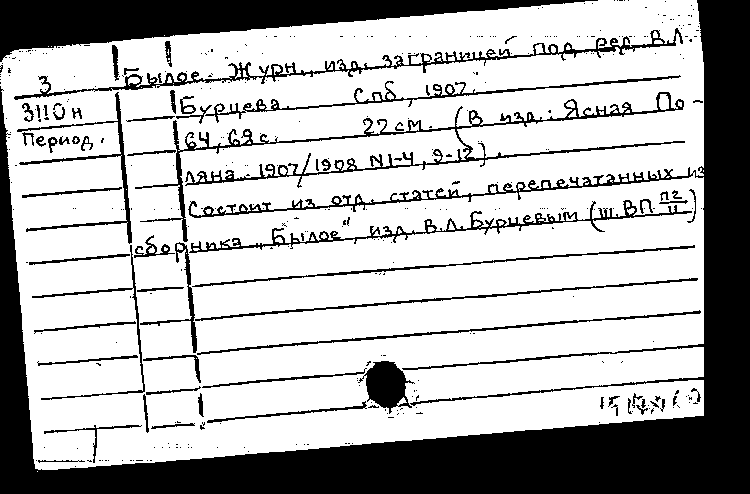 Былое. Журн., изд. заграницей под ред. В.Л.
3
3110н
Период.
Бурцева. Спб, 1907.
64, 68 с. 27 см. (В изд.: Ясная По-
ляна. 1907/1908 N1-4, 9-12).
Состоит из отд. статей, перепечатанных из
сборника "Былое", изд. В.Л. Бурцевым (ш. ВП пг/II)